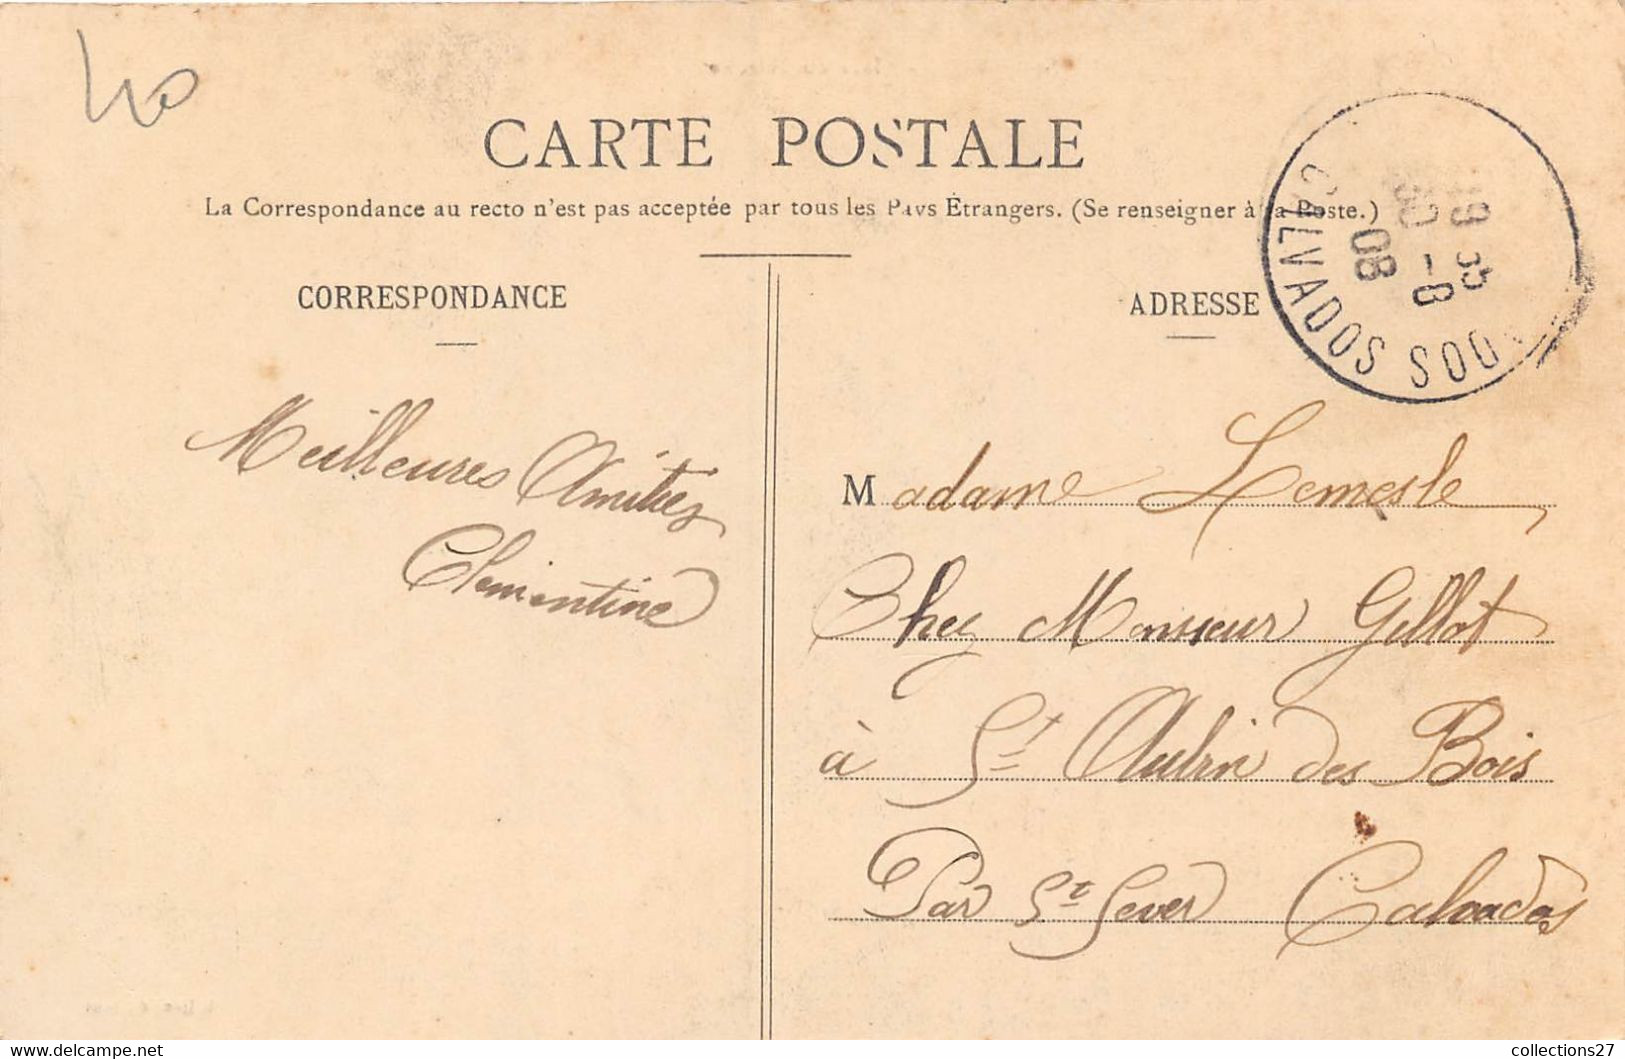 40
CARTE POSTALE
La Correspondance au recto n'est pas acceptée par tous les Pays Étrangers. (Se renseigner à la Poste.)
CORRESPONDANCE
Meilleures Amitiés
Clémentine
ADRESSE
CALVADOS
19 35
30 -8
08
Madame Lemesle
Chez Monsieur Gillot
à St Aubin des Bois
Par St Sever Calvados
collections27